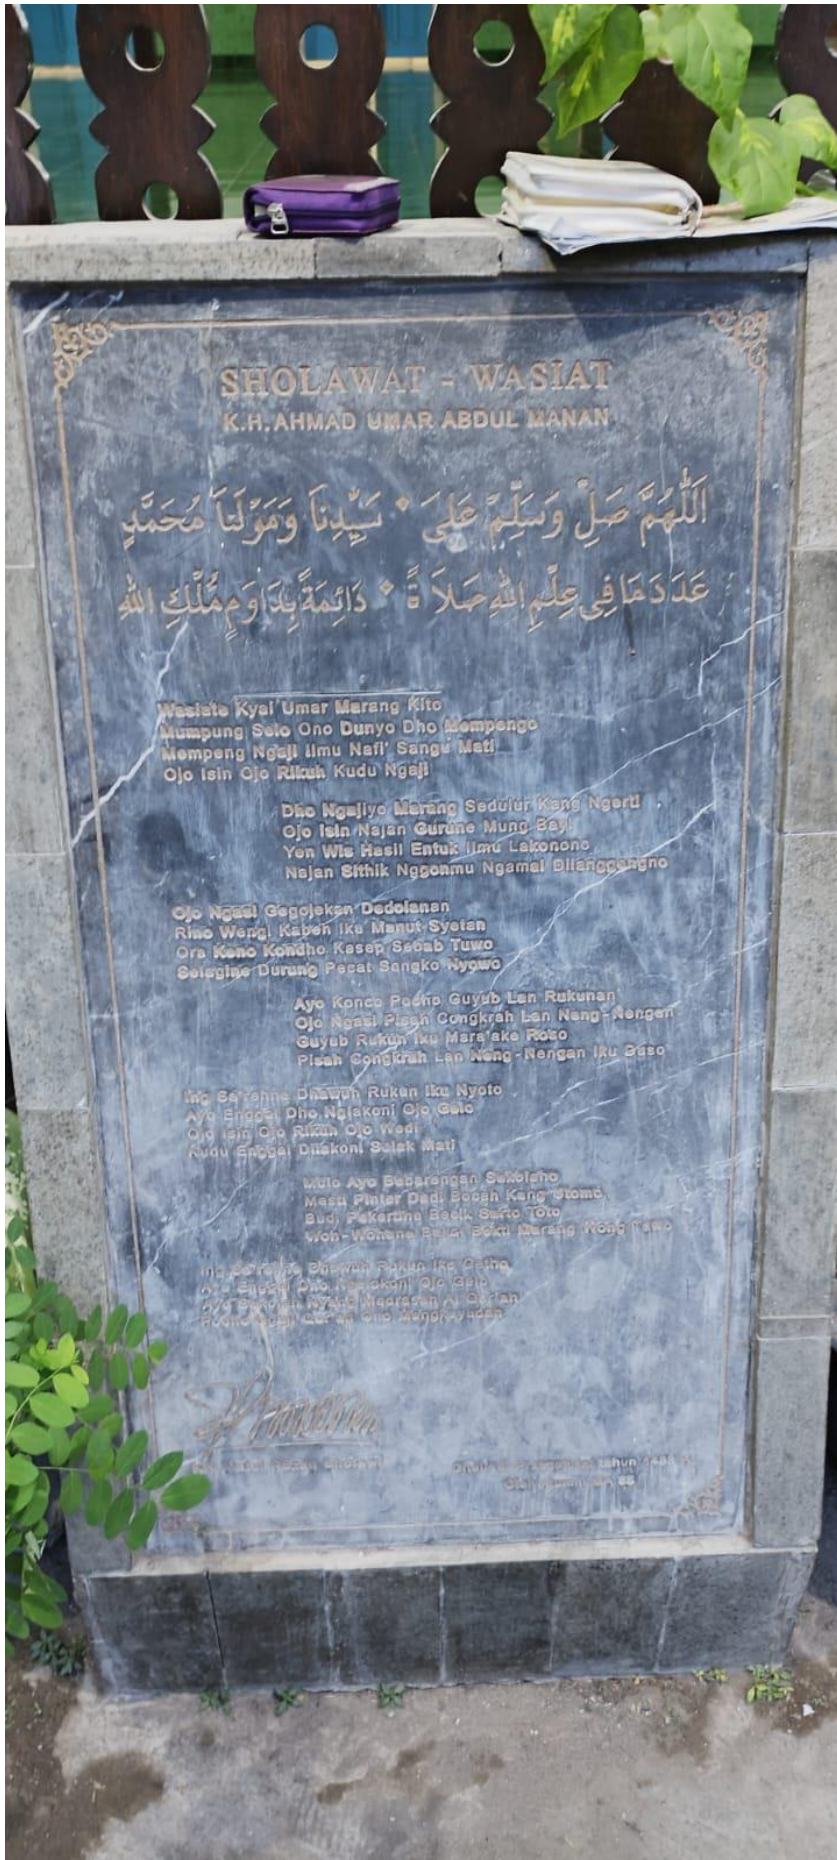 SHOLAWAT - WASIAT
K.H. AHMAD UMAR ABDUL MANAN
اَللّٰهُمَّ صَلِّ وَسَلِّمْ عَلَىَ * سَيِّدِنَا وَمَوْلَنَا مُحَمَّدٍ
عَدَدَ مَا فِى عِلْمِ اللهِ صَلاَ ةً * دَائِمَةً بِدَاوَمِ مُلْكِ اللهِ
Wasiate Kyai Umar Marang Kito
Mumpung Selo Ono Dunyo Dho Mempengo
Mempeng Ngaji Ilmu Nafi' Sangu Mati
Ojo Isin Ojo Rikuh Kudu Ngaji
Dho Ngajiyo Marang Sedulur Kang Ngerti
Ojo Isin Najan Gurune Mung Bayi
Yen Wis Hasil Entuk Ilmu Lakonono
Najan Sithik Nggonmu Ngamal Dilanggengno
Ojo Ngasi Gegojekan Dedolanan
Rino Wengi Kabeh Iku Manut Syetan
Ora Keno Kondho Kasep Sebab Tuwo
Selagine Durung Pecat Sangko Nyowo
Ayo Konco Podho Guyub Lan Rukunan
Ojo Ngasi Pisah Congkrah Lan Neng-Nengan
Guyub Rukun Iku Mara'ake Roso
Pisah Congkrah Lan Neng-Nengan Iku Duso
Ing Sa'rehne Dhawuh Rukun Iku Nyoto
Ayo Enggal Dho Nglakoni Ojo Gelo
Ojo Isin Ojo Rikuh Ojo Wedi
Kudu Enggal Dilakoni Selak Mati
Mulo Ayo Bebarengan Sekolaho
Mesti Pinter Dadi Bocah Kang Utomo
Budi Pekertine Becik Sarto Toto
Woh-Wohane Bekti Marang Wong Tuwo
Ing Sa'rehne Dhawuh Rukun Iku
Ayo Enggal Dho Nglakoni Ojo Gelo
Ayo Madrasah Al Qur'an
Podho Ngaji Qur'an Ono Mangkuyudan
tahun